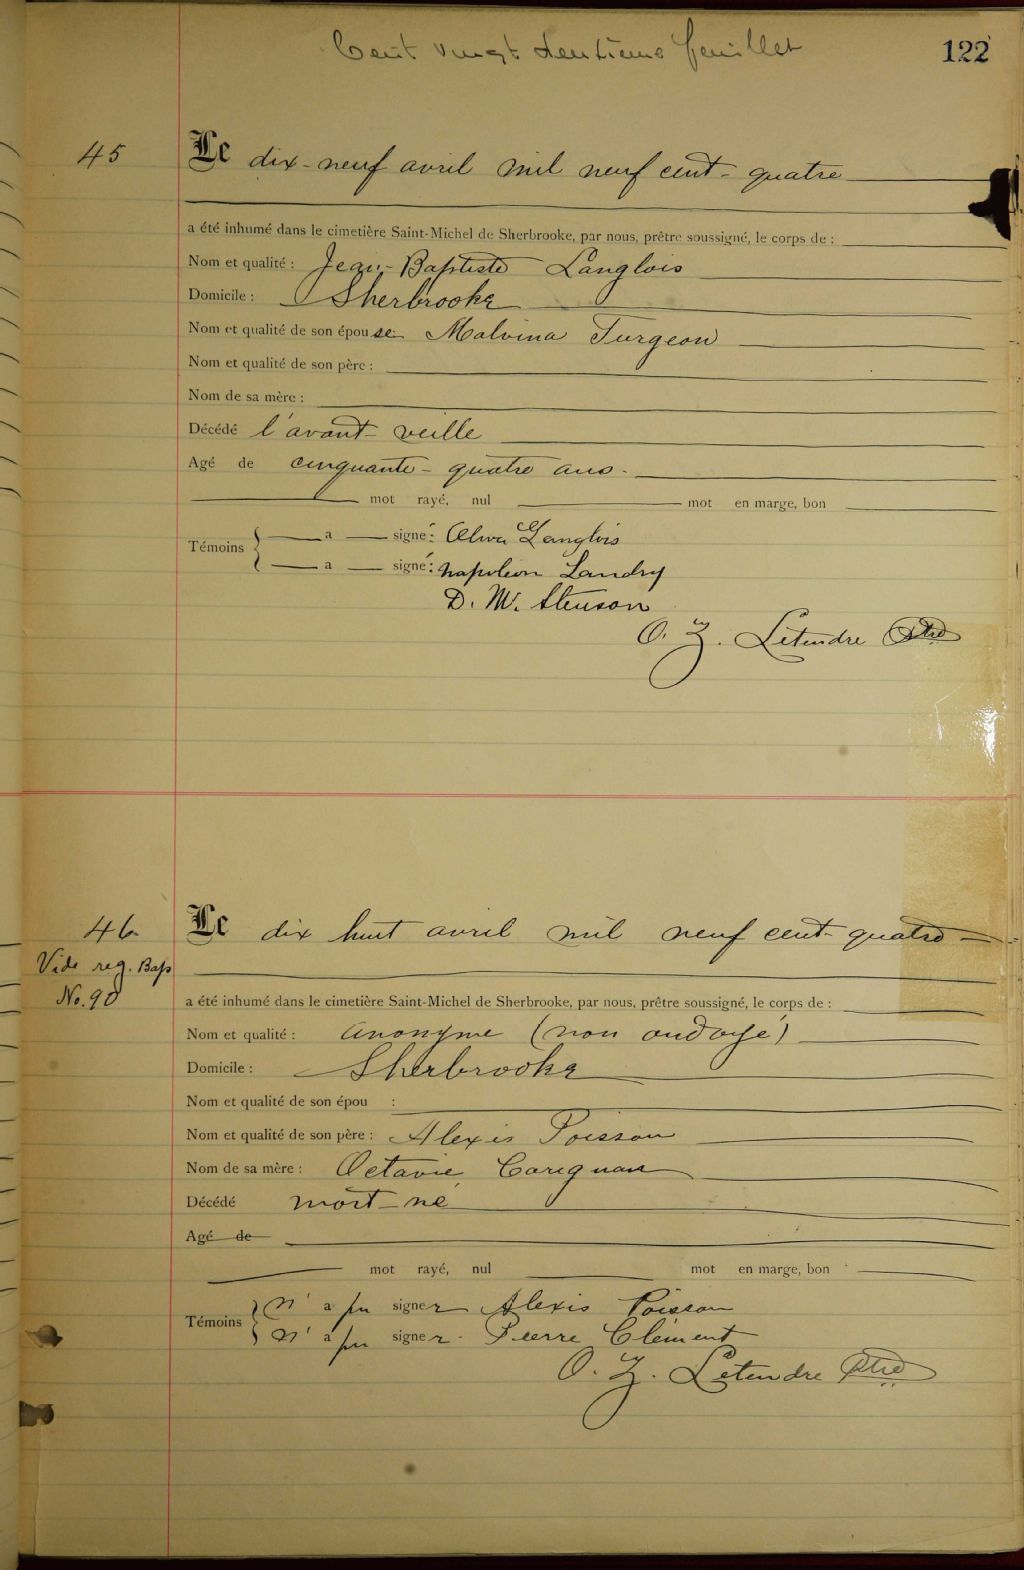 Cent vingt deuxième feuillet 122
45 Le dix-neuf avril mil neuf cent-quatre
a été inhumé dans le cimetière Saint-Michel de Sherbrooke, par nous, prêtre soussigné, le corps de :
Nom et qualité : Jean-Baptiste Langlois
Domicile : Sherbrooke
Nom et qualité de son épouse Malvina Turgeon
Nom et qualité de son père :
Nom de sa mère :
Décédé l'avant-veille
Agé de cinquante-quatre ans.
mot rayé, nul mot en marge, bon
Témoins
a signé: Langlois
a signé: Napoleon Landry
D. W. Stenson
O. Z. Letendre Ptre
46 Le dix huit avril mil neuf cent-quatre
Vide reg. Bap
No. 90
a été inhumé dans le cimetière Saint-Michel de Sherbrooke, par nous, prêtre soussigné, le corps de :
Nom et qualité : Anonyme (non ondoyé)
Domicile : Sherbrooke
Nom et qualité de son épou :
Nom et qualité de son père : Alexis Poisson
Nom de sa mère : Octavie Carignan
Décédé mort-né
Agé de
mot rayé, nul mot en marge, bon
Témoins
n'a pu signer Alexis Poisson
n'a pu signer. Pierre Clément
O. Z. Letendre Ptre